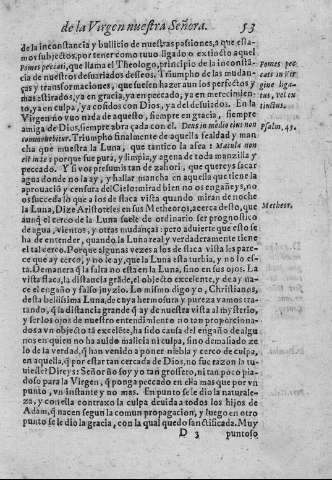 de la Virgen nuestra Señora. 53
de la inconstancia y bullicio de nuestras pasiones, a que esta-
mos subjectos, por tener como tuuo ligado o extincto aquel
Fomes peccati, que llama el Theologo, principio de la inconstã-
cia de nuestros desuariados desseos. Triumpho de las mudan-
ças y transformaciones, que suelen hazer aun los perfectos y
mas estirados, ya en gracia, ya en peccado, ya en merecimien-
to, ya en culpa, ya cosidos con Dios, ya del desuiados. En la
Virgen no vuo nada de aquesto, siempre en gracia, siempre
amiga de Dios, siempre abraçada con el. Deus in medio eius non
commouebitur. Triumpho finalmente de aquella fealdad y man
cha que muestra la Luna, que tantico la afea: Macula non
est in te: porque fue pura, y limpia, y agena de toda manzilla y
peccado. Y si vos presumis tan de zahori, que quereys sacar
agua donde no la ay, y hallar mancha en aquella que tiene la
aprouacion y censura del Cielo: mirad bien no os engañeys, no
os succeda lo que a los de flaca vista quando miran de noche
la Luna, Dize Aristoteles en sus Metheoros, acerca desto, que
aunq̃ el cerco de la Luna suele de ordinario ser prognostico
de agua, vientos, y otras mudanças: pero aduierte que esto se
ha de entender, quando la Luna real y verdaderamente tiene
el tal cerco. Porque algunas vezes a los de flaca vista les pare-
ce que ay cerco, y no le ay, que la Luna esta turbia, y no lo es-
ta. Demanera q̃ la falta no esta en la Luna, sino en sus ojos. La
vista flaca, la distancia grãde, el objecto excelente, y de ay na-
ce el engaño y falso juyzio. Lo mismo digo yo, Christianos,
desta bellissima Luna, de cuya hermosura y pureza vamos tra-
tando, q̃ la distancia grande q̃ ay de nuestra vista al mysterio,
y ser los ojos de nuestro entendimiento no tan proporciona-
dos a vn objecto tã excelẽte, ha sido causa del engaño de algu-
nos en quien no ha auido malicia ni culpa, sino demasiado ze-
lo de la verdad, q̃ han venido a poner niebla y cerco de culpa,
en aquella, q̃ por estar tan cercada de Dios, no fue razon la tu-
uiesse? Direys: Señor ño soy yo tan grossero, ni tan poco pia-
doso para la Virgen, q̃ ponga peccado en ella mas que por vn
punto, vn instante y no mas. En punto se le dio la naturale-
za, y con ella contraxo la culpa deuida a todos los hijos de
Adam, q̃ nacen segun la comun propagacion, y luego en otro
punto se le dio la gracia, con la qual quedo sanctificada. Muy
D 3 puntoso
Fomes pec-
cati in Vir
gine liga-
tus, vel ex
tinctus.
Psalm. 45.
Metheor.